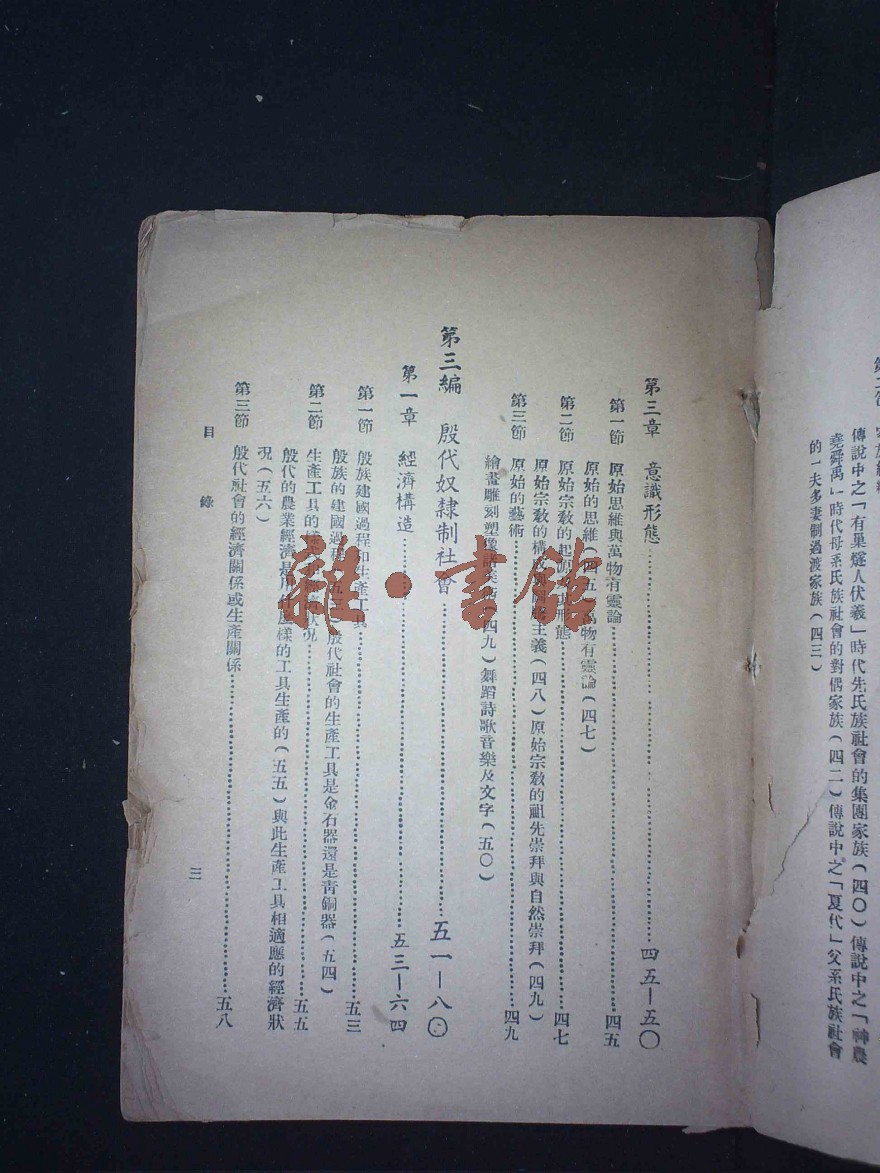 傳說中之「有巢燧人伏羲」時代先氏族社會的集團家族(四〇)傳說中之「神農
堯舜禹」時代母系氏族社會的對偶家族(四二)傳說中之「夏代」父系氏族社會
的一夫多妻制過渡家族(四三)
第三章 意識形態⋯⋯四五—五〇
第一節 原始思維與萬物有靈論⋯⋯四五
原始的思維(四五)萬物有靈論(四七)
第二節 原始宗教的起源 形態⋯⋯四七
原始宗教的構成 主義(四八)原始宗教的祖先崇拜與自然崇拜(四九)
第三節 原始的藝術⋯⋯四九
繪畫雕刻塑像 (四九)舞蹈詩歌音樂及文字(五〇)
第三編 殷代奴隸制社會⋯⋯五一—八〇
第一章 經濟構造⋯⋯五三—六四
第一節 殷族建國過程和生產工具⋯⋯五三
殷族的建國過程 殷代社會的生產工具是金石器還是青銅器(五四)
第二節 生產工具的 狀況⋯⋯五五
殷代的農業經濟是用什麼樣的工具生產的(五五)與此生產工具相適應的經濟狀
況(五六)
第三節 殷代社會的經濟關係或生產關係⋯⋯五八
目 錄
三
雜·書館